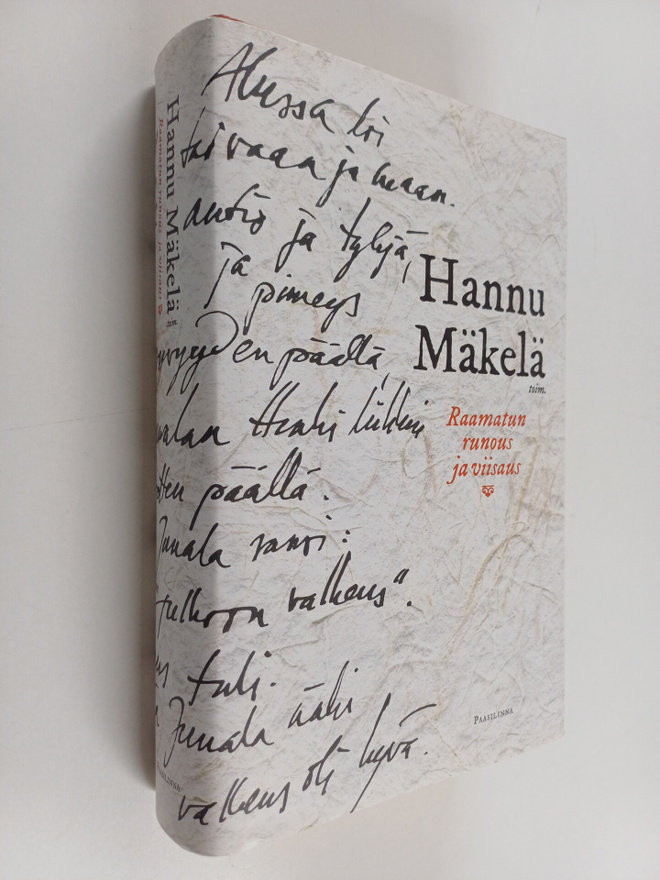 Hannu Mäkelä toim.
Raamatun runous ja viisaus
PAASILINNA
Alussa loi
taivaan ja maan.
autio ja tyhjä,
ja pimeys
syvyyden päällä,
Henki liikkui
päällä.
Jumala sanoi:
tulkoon valkeus".
tuli.
Jumala näki
valkeus oli hyvä.
Hannu
Mäkelä
toim.
Raamatun
runous
ja viisaus
PAASILINNA